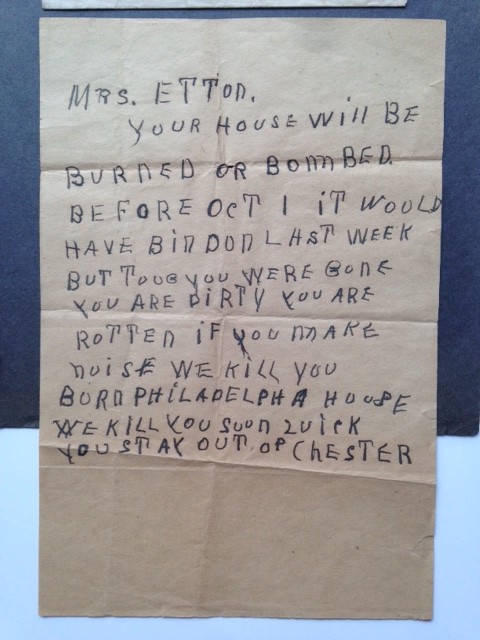 MRS. ETTON.
YOUR HOUSE WILL BE
BURNED OR BOMBED
BEFORE OCT 1 IT WOULD
HAVE BIN DON LAST WEEK
BUT YOU WERE GONE
YOU ARE DIRTY YOU ARE
ROTTEN IF YOU MAKE
NUISE WE KILL YOU
BURN PHILADELPHA HOUSE
WE KILL YOU SOON 2UICK
YOU STAY OUT OF CHESTER